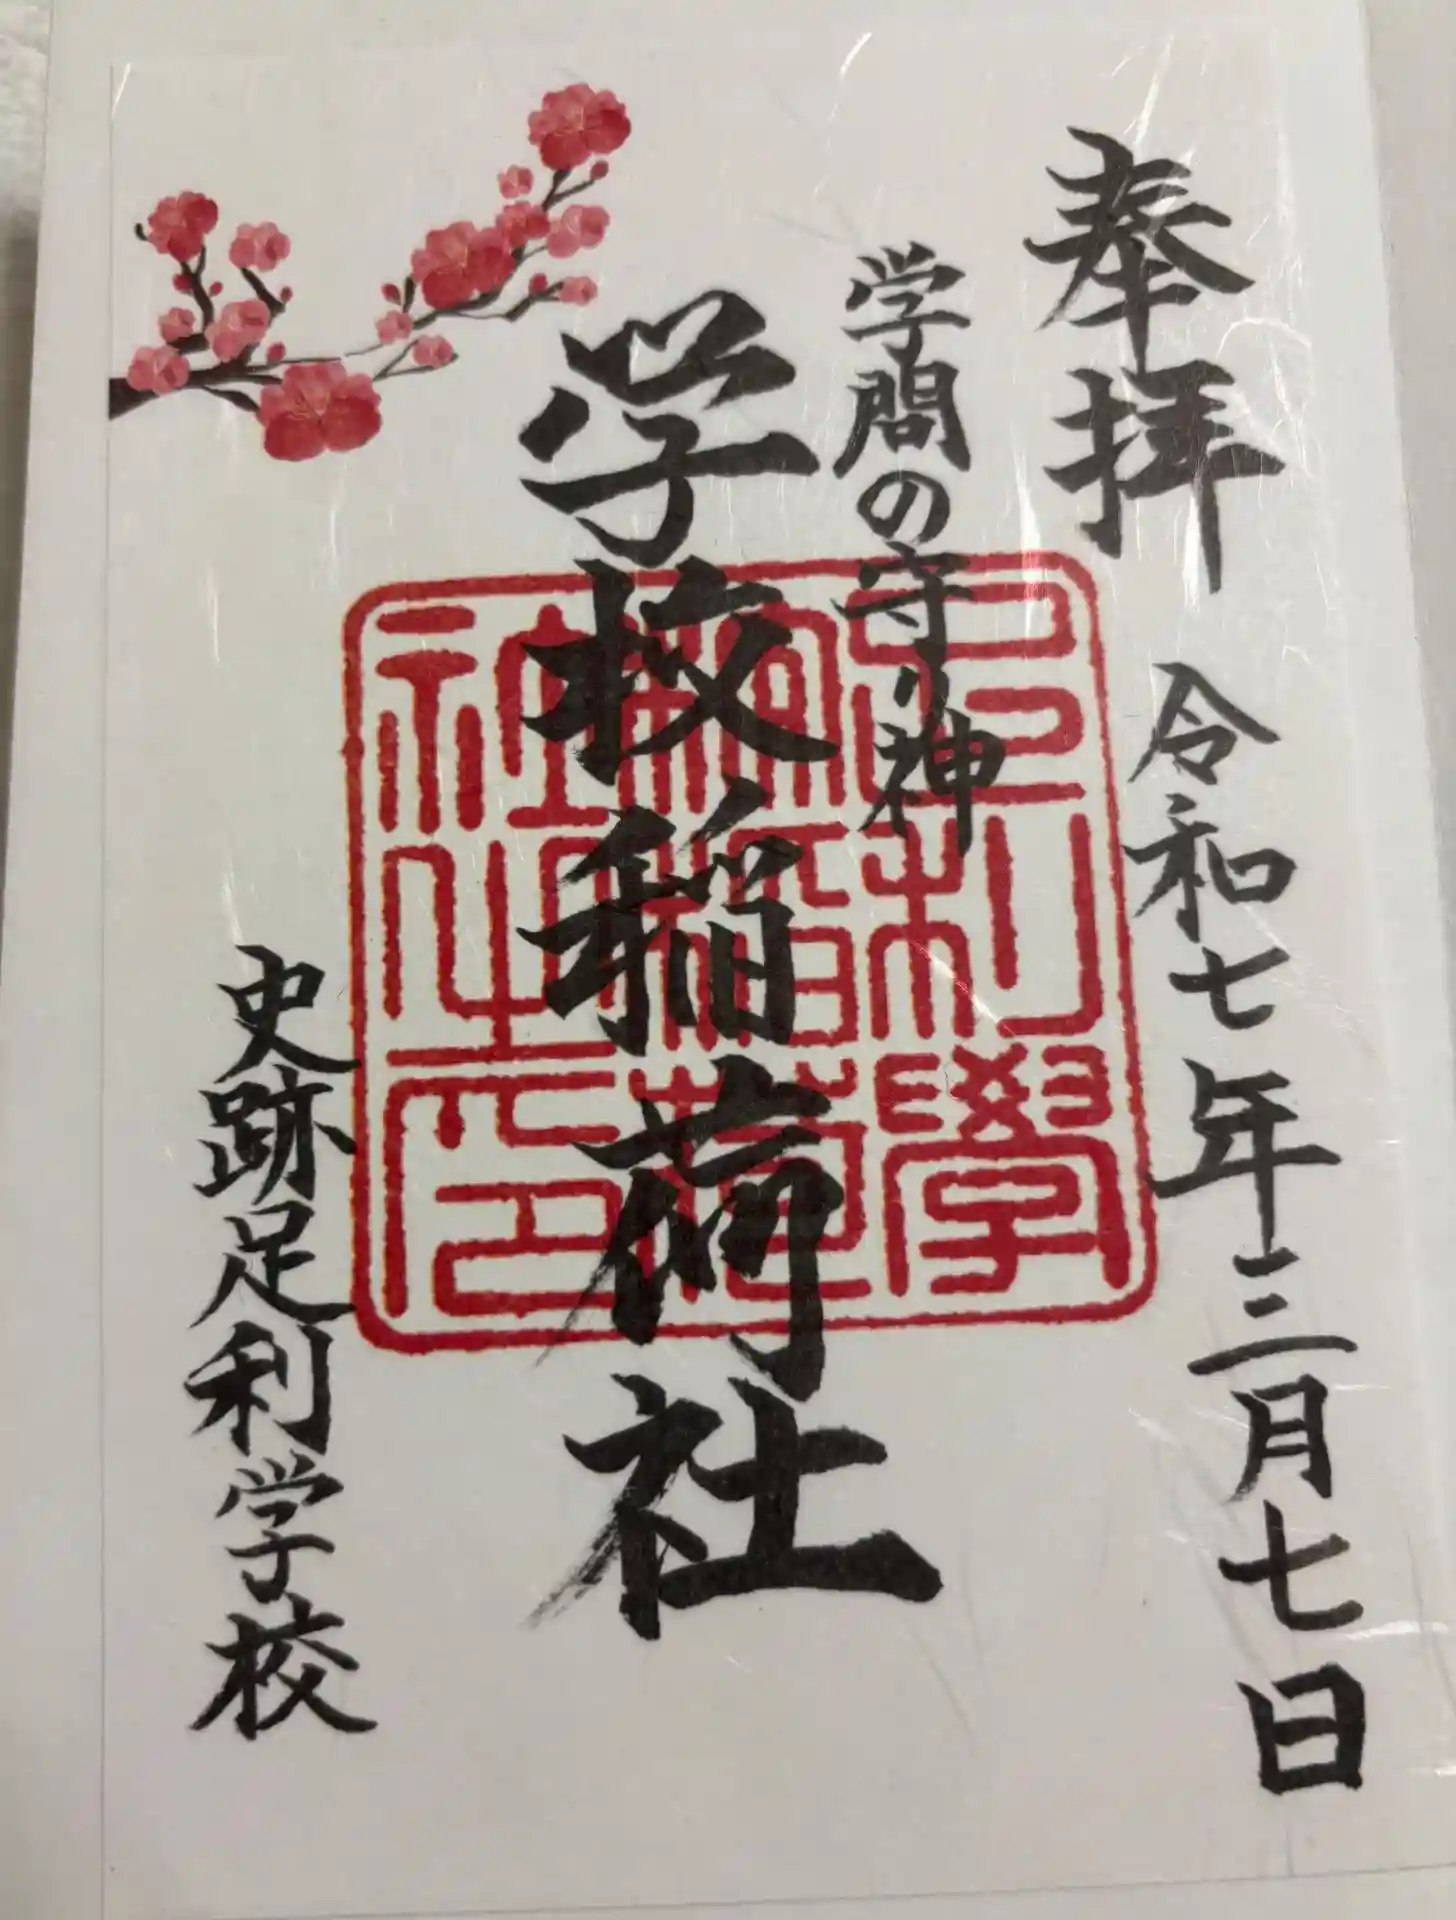 奉拝
令和七年三月七日
学問の守り神
学校稲荷社
史跡足利学校
足利學
稲荷
社之印